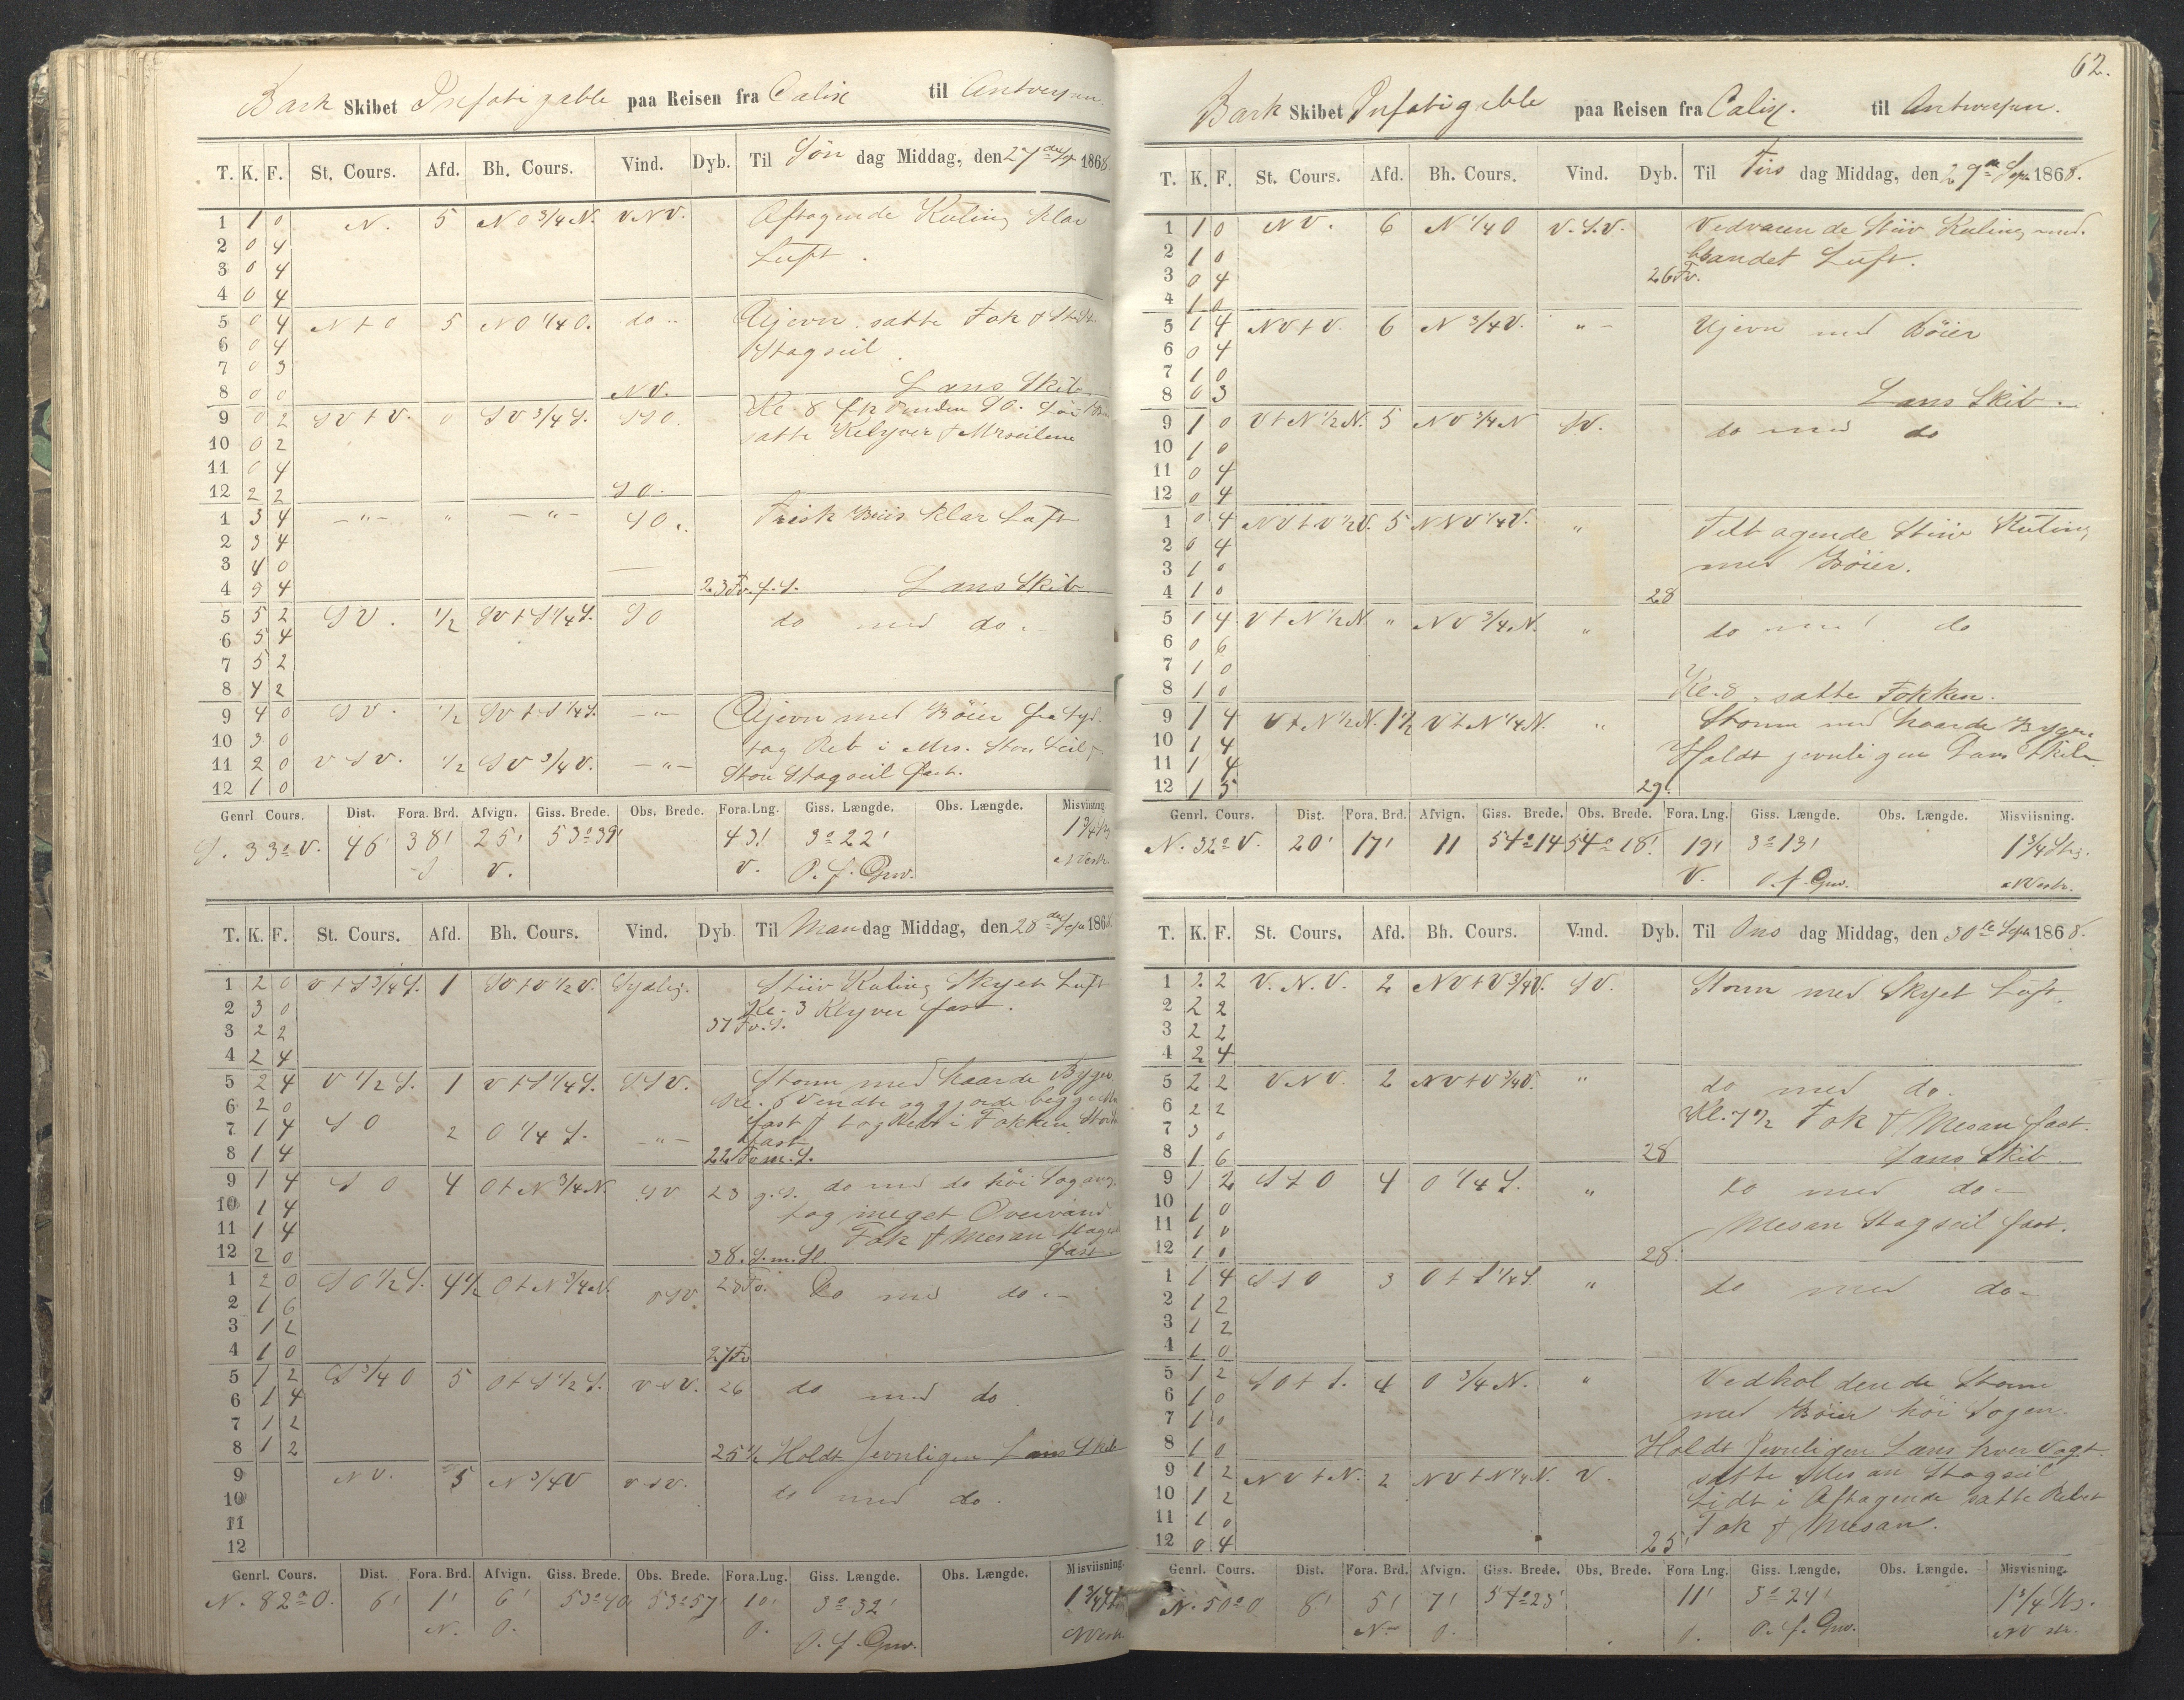 Bark Skibet Insfatigable paa Reisen fra Calix til Antwerpen
T. K. F. St. Cours. Afd. Bh. Cours. Vind. Dyb. Til Søn dag Middag, den 27de Sept 1868
1 1 0 N. 5 NO 3/4 N. VNV. Aftagende Kuling Klar
2 0 4 Luft.
3 0 4
4 0 4
5 0 4 N t O 5 NO 1/4 O. do Ujevn satte Fok &
6 0 4 Stagseil.
7 0 3
8 0 0 NV. Læns Skib.
9 0 2 SV t V. 0 SV 3/4 S. SSO. Kl. 8
10 0 2 satte Klyver & Mrsseilene
11 0 4
12 2 2 SO.
1 3 4 -"- " -"- SO. Frisk Briis Klar Luft
2 3 4
3 4 0
4 3 4 23 Fv. f. S. Læns Skib
5 5 2 SV. 1/2 SV t S 1/4 S. SO do med do.
6 5 4
7 5 2
8 4 2
9 4 0 SV. 1/2 SV t S 1/4 S. -"- Ujevn med Bøier fra Syd.
10 3 0 tog Reb i Mrs. Store Seil &
11 2 0 VSV. 1/2 SV 3/4 V. -"- Store Stagseil fast.
12 1 0
Genrl. Cours. Dist. Fora. Brd. Afvign. Giss. Brede. Obs. Brede. Fora. Lng. Giss. Længde. Obs. Længde. Misviisning
S. 33° V. 46' 38' 25' 53°39' 43' 3°22' 1 3/4 Str
S V. V. O. f. Grw. NVestr.
T. K. F. St. Cours. Afd. Bh. Cours. Vind. Dyb. Til Man dag Middag, den 28de Sept 1868
1 2 0 V t S 3/4 S. 1 SV t V 1/2 V. Sydlig. Stiiv Kuling Skyet Luft
2 3 0 Kl. 3 Klyver fast.
3 2 2 37 Fv. S.
4 2 4
5 2 4 V 1/2 S. 1 V t S 1/4 S. SSV. Storm med haarde Byger
6 2 0 Kl. 5 Vendte og gjorde begge Mrs
7 1 4 SO 2 O 1/4 S. -"- fast & tog Rebet i Fokken
8 1 4 22 Fv m. S. fast
9 1 4 SO 4 O t N 3/4 N. SV 23 g. S. do med do høi Søgang
10 1 4 tog meget Overvand
11 1 4 Fok & Mesan Stagseil
12 2 0 38. S. m. St. fast
1 2 0 SO 1/2 S. 4 1/2 O t N 3/4 N. VSV 28 Fv. Do med do
2 1 6
3 1 2
4 1 0 27 Fv
5 1 2 S 3/4 O 5 O t S 1/2 S. VSV. 26 do med do.
6 1 4
7 1 2
8 1 2 25 1/2 Holdt Jevnligen Læns Skib
9 NV. 5 N 3/4 V VSV. do med do.
10
11
12
Genrl. Cours. Dist. Fora. Brd. Afvign. Giss. Brede. Obs. Brede. Fora. Lng. Giss. Længde. Obs. Længde. Misviisning.
N. 82° O. 6' 1' 6' 53°40' 53°57' 10' 3°32' 1 3/4 Str
N. O. O. O. f. Grw. NVestr.
62.
Bark Skibet Insfatigable paa Reisen fra Calix. til Antwerpen.
T. K. F. St. Cours. Afd. Bh. Cours. Vind. Dyb. Til Tirs dag Middag, den 29de Sept 1868.
1 1 0 NV. 6 N 1/4 O V.S.V. Vedvarende Stiiv Kuling med
2 1 0 blandet Luft.
3 0 4 26 Fv.
4 1 0
5 1 4 NV t V. 6 N 3/4 V. " - Ujevn med Bøier
6 0 4
7 1 0
8 0 3 Læns Skib.
9 1 0 V t N 1/2 N. 5 NV 3/4 N SV. do med do
10 1 0
11 0 4
12 0 4
1 0 4 NV t V 1/2 V. 5 NNV 1/4 V. " Tiltagende Stiiv Kuling
2 0 4 med Bøier.
3 1 0
4 1 0 28
5 1 4 V t N 1/2 N. " NV 3/4 N. " do med do
6 0 6
7 1 0
8 1 0 Kl. 8. satte Fokken.
9 1 4 V t N 1/2 N. 1 1/2 V t N 1/4 N. " Storm med haarde Byger.
10 1 4 Holdt jevnligen Læns Skib.
11 1 4
12 1 5 29.
Genrl. Cours. Dist. Fora. Brd. Afvign. Giss. Brede. Obs. Brede. Fora. Lng. Giss. Længde. Obs. Længde. Misviisning.
N. 32° V. 20' 17' 11 54°14 54°18' 19' 3°13' 1 3/4 Str.
V. O. f. Grw. NVestr.
T. K. F. St. Cours. Afd. Bh. Cours. Vind. Dyb. Til Ons dag Middag, den 30te Sept 1868.
1 2 2 V. N. V. 2 NV t V 3/4 V. SV. Storm med Skyet Luft.
2 2 2
3 2 2
4 2 4
5 2 2 VNV. 2 NV t V 3/4 V. " do med do.
6 2 2 Kl. 7 1/2 Fok & Mesan fast.
7 3 0
8 1 6 28 Læns Skib
9 1 2 S t O 4 O 1/4 S. " do med do
10 1 0
11 1 0 Mesan Stagseil fast.
12 1 0 28
1 1 4 S t O 3 O t S 1/4 S. " do med do
2 1 2
3 1 2
4 1 0
5 1 2 SO t S. 4 O 3/4 N. " Vedholdende Storm
6 1 0 med Bøier høi Søgan.
7 1 0
8 1 0 Holdt Jevnligen Læns hver Vagt.
9 1 2 NV t N. 2 NV t N 1/4 N. V. satte Mesan Stagseil
10 1 2 Lidt i Aftagende satte Rebet
11 1 0 Fok & Mesan.
12 0 4 25
Genrl. Cours. Dist. Fora. Brd. Afvign. Giss. Brede. Obs. Brede. Fora Lng. Giss. Længde. Obs. Længde. Misvisning.
N. 50° O 8' 5' 7' 54°23' 11' 3°24' 1 3/4 Str.
N. O. O. O. f. Grw. NV str.